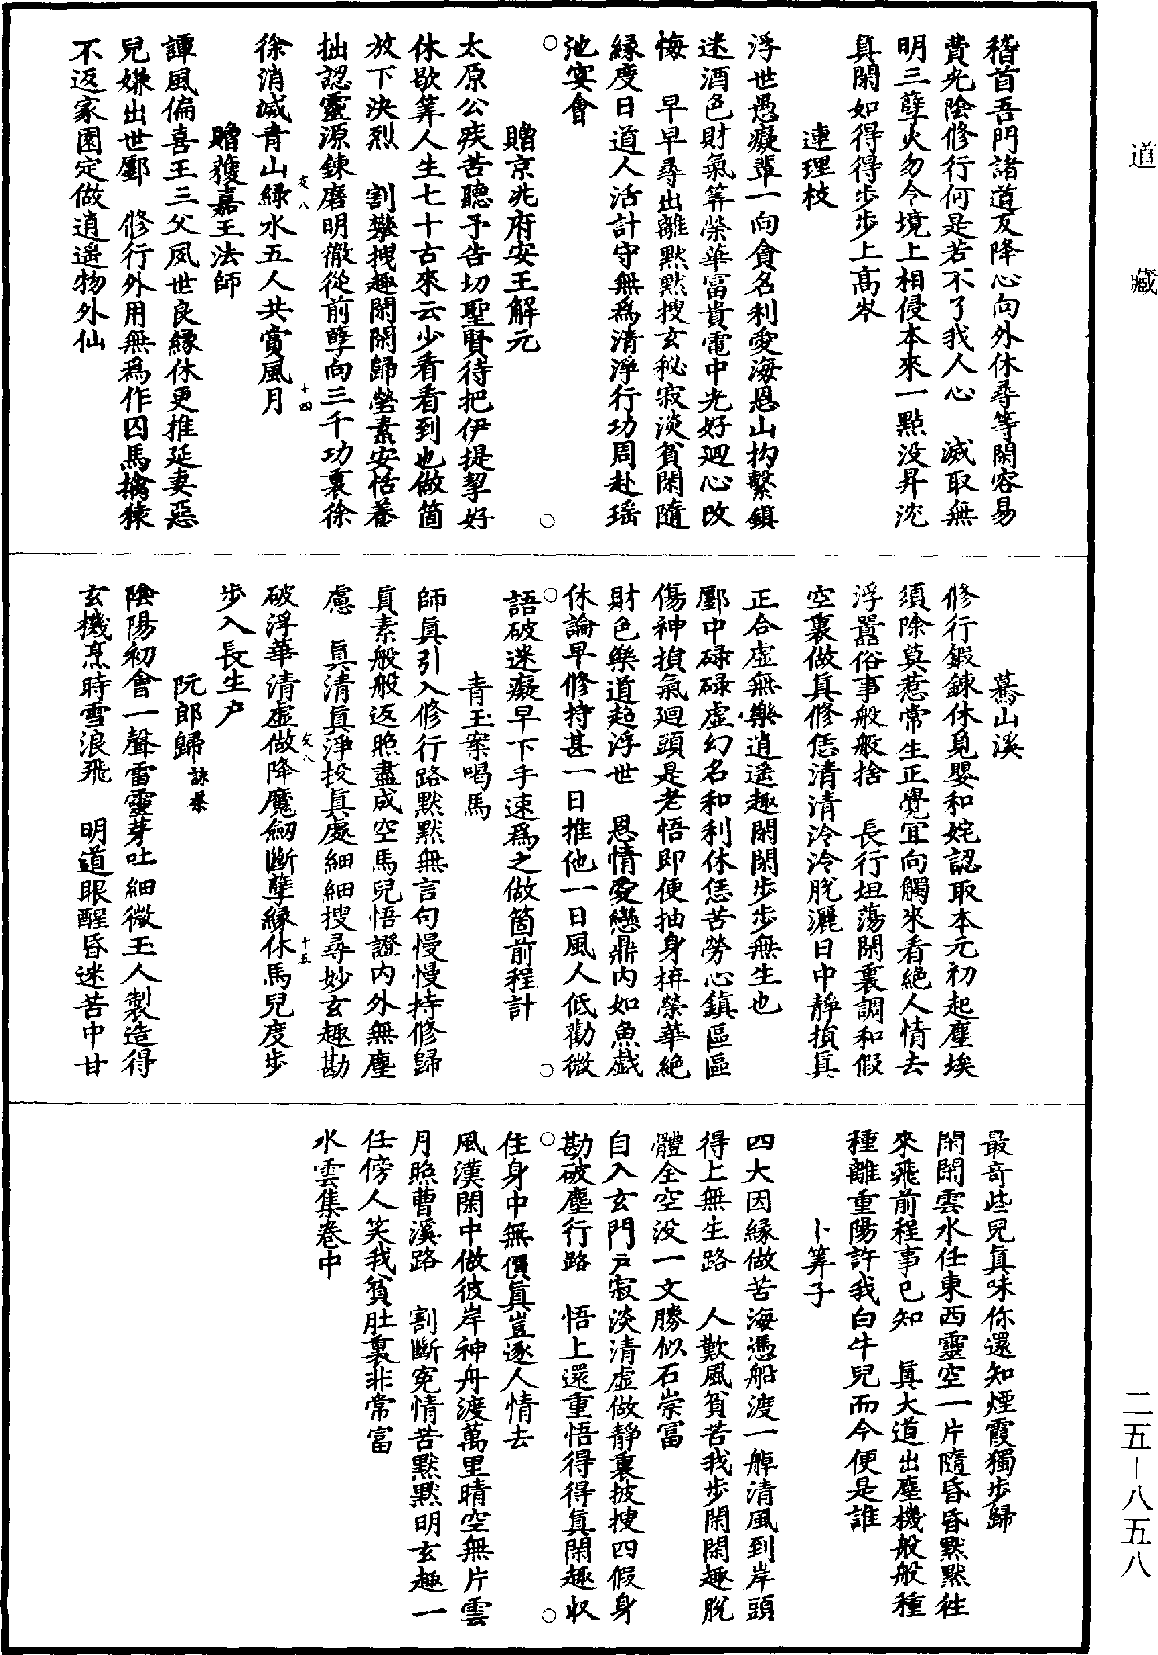 道藏
稽首吾門諸道友降心向外休尋等閑容易
費光陰修行何是苦不了我人心　滅取無
明三孽火勿令境上相侵本來一點没昇沈
真閑如得得步步上高岑
連理枝
浮世愚癡輩一向貪名利愛海恩山抅繫鎮
迷酒色財氣筭榮華富貴電中光好迴心改
悔　早早尋出離默默搜玄秘寂淡貧閑隨
緣度日道人活計守無爲清淨行功周赴瑶
池宴會
○　○
贈京兆府安王解元
太原公疾苦聽予告切聖賢待把伊提挈好
休歇筭人生七十古來云少看看到也做箇
放下决烈　割攀拽趣閑閑歸塋素安恬養
拙認靈源鍊磨明徹從前孽向三千功裏徐
亥八　十四
徐消滅青山緑水五人共賞風月
贈穫嘉王法師
譚風偏喜王三父夙世良緣休更推延妻惡
兒嫌出世鄽　修行外用無爲作囚馬擒猿
不返家園定做逍遥物外仙
驀山溪
修行鍛鍊休覓嬰和姹認取本元初起塵埃
須除莫惹常生正覺冝向觸來看絶人情去
浮囂俗事般般捨　長行坦蕩閑裏調和假
空裏做真修恁清清泠泠脱灑日中靜損真
正合虚無樂逍遥趣閑閑步步無生也
鄽中碌碌虚幻名和利休恁苦勞心鎮區區
傷神損氣迴頭是老悟即便抽身拚榮華絶
財色樂道超浮世　恩情愛戀鼎内如魚戲
休論早修持甚一日推他一日風人低勸微
○　○
語破迷癡早下手速爲之做箇前程計
青玉案喝馬
師真引入修行路默默無言句慢慢持修歸
真素般般返照盡成空馬兒悟證内外無塵
慮　真清真淨投真處細細搜尋妙玄趣勘
破浮華清虚做降魔劒斷孽緣休馬兒度步
亥八　十五
步入長生户
阮郎歸詠茶
陰陽初會一聲雷靈芽吐細微玉人製造得
玄機烹時雪浪飛　明道眼醒昏迷苦中甘
最奇些兒真味你還知煙霞獨步歸
閑閑雲水任東西靈空一片隨昏昏默默往
來飛前程事已知　真大道出塵機般般種
種離重陽許我白牛兒而今便是誰
卜筭子
四大因緣做苦海憑船渡一艀清風到岸頭
得上無生路　人歎風貧苦我步閑閑趣脱
體全空没一文勝似石崇富
自入玄門户寂淡清虚做靜裏披搜四假身
勘破塵行路　悟上還重悟得得真閑趣収
○　○
住身中無價真豈逐人情去
風漢閑中做彼岸神舟渡萬里晴空無片雲
月照曹溪路　割斷寃情苦默默明玄趣一
任傍人笑我貧肚裏非常富
水雲集卷中
二五—八五八